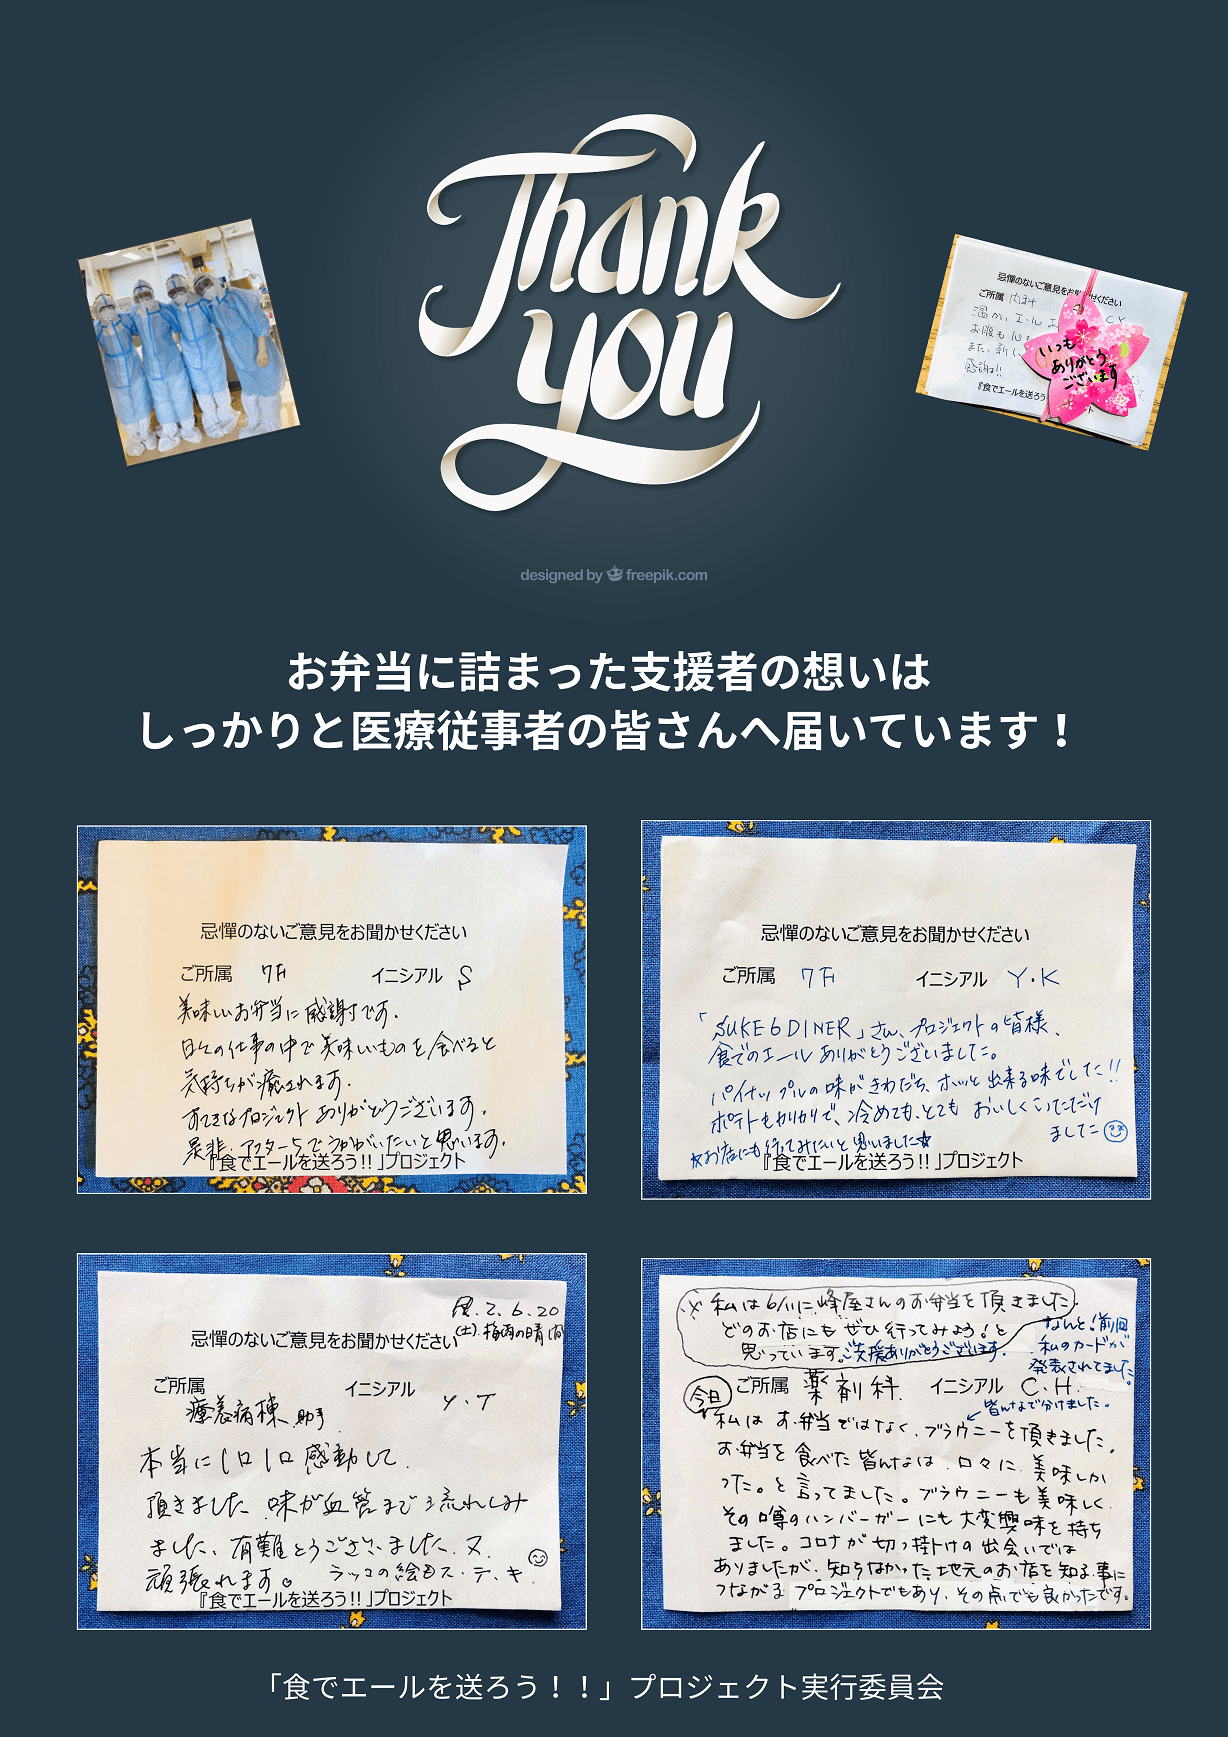 Thank
you
忌憚のないご意見をお聞かせください
ご所属 内科
C Y
温かいエール
お腹も心も
また、新し
感謝!!
『食でエールを送ろう
いつも
ありがとう
ございます
designed by freepik.com
お弁当に詰まった支援者の想いは
しっかりと医療従事者の皆さんへ届いています！
忌憚のないご意見をお聞かせください
ご所属 7F イニシアル S
美味しいお弁当に感謝です。
日々の仕事の中で美味いものを食べると
気持ちが癒されます。
すてきなプロジェクト ありがとうございます。
是非、アフター5でうかがいたいと思います。
『食でエールを送ろう!!』プロジェクト
忌憚のないご意見をお聞かせください
ご所属 7F イニシアル Y.K
「SUKE6DINER」さん、プロジェクトの皆様、
食でのエール ありがとうございました。
パイナップルの味がきわだち、ホッと出来る味でした!!
ポテトもカリカリで、冷めても、とても おいしくいただけ
ました
☆お店にも行ってみたいと思いました☆
『食でエールを送ろう!!』プロジェクト
R.2.6.20
(土).梅雨の晴れ間
忌憚のないご意見をお聞かせください
ご所属 イニシアル Y.T
療養病棟 助手
本当に1口1口感動して
頂きました 味が血管まで流れしみ
ました、有難とうございました.又.
頑張れます。 ラッコの絵もス・テ・キ
『食でエールを送ろう!!』プロジェクト
私は6/1に、峰屋さんのお弁当を頂きました。
どのお店にもぜひ行ってみよう!と
思っています。ご支援ありがとうございます。
なんと!前回
私のカードが
発表されてました。
今日
ご所属 薬剤科 イニシアル C.H.
皆んなで分けました。
私は お弁当ではなく、ブラウニーを頂きました。
お弁当を食べた皆んなは、口々に、美味しか
った。と言ってました。ブラウニーも美味しく、
その噂のハンバーガーにも大変興味を持ち
ました。コロナが切っ掛けの出会いでは
ありましたが、知らなかった地元のお店を知る事に
つながるプロジェクトでもあり、その点でも良かったです。
「食でエールを送ろう！！」プロジェクト実行委員会